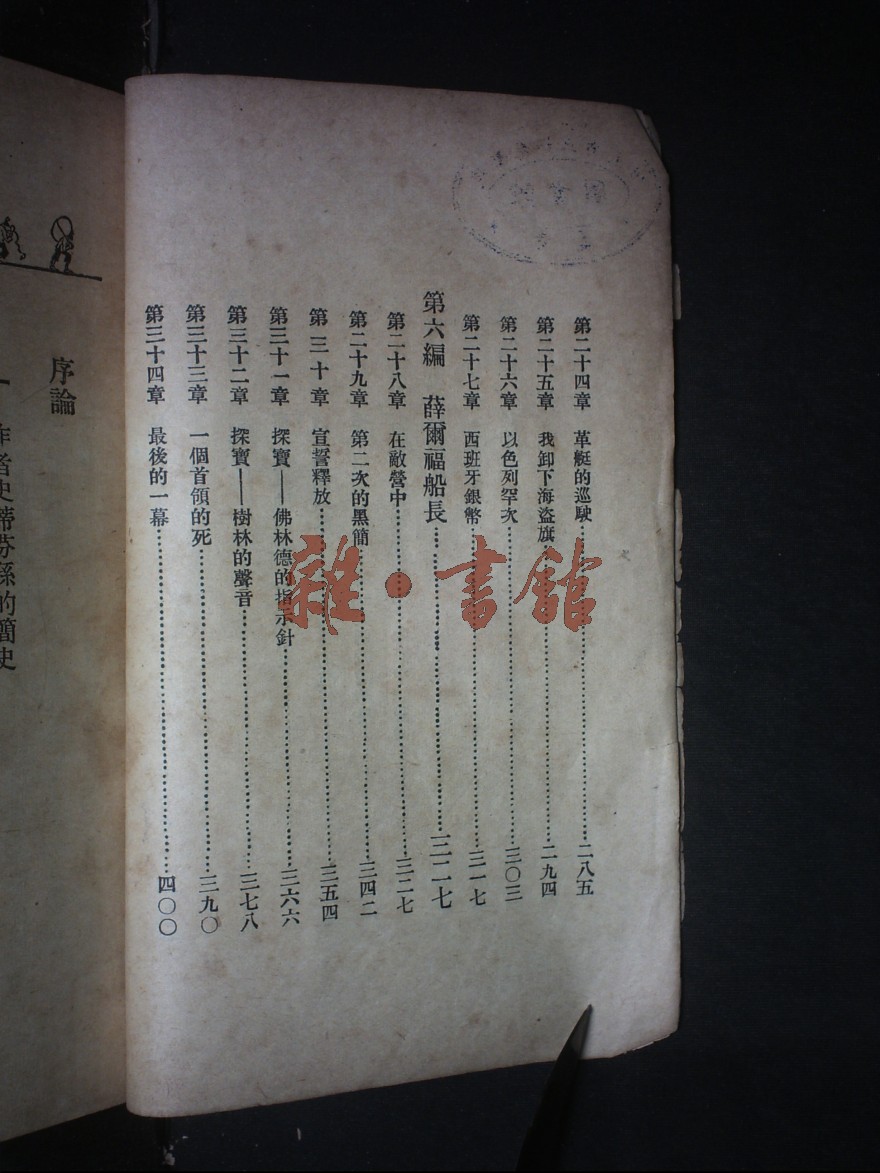 第二十四章 革艇的巡駛……二八五
第二十五章 我卸下海盜旗……二九四
第二十六章 以色列罕次……三〇三
第二十七章 西班牙銀幣……三一七
第六編 薛爾福船長……三二七
第二十八章 在敵營中……三二七
第二十九章 第二次的黑簡……三四二
第三十章 宣誓釋放……三五四
第三十一章 探寶——佛林德的指示針……三六六
第三十二章 探寶——樹林的聲音……三七八
第三十三章 一個首領的死……三九〇
第三十四章 最後的一幕……四〇〇
雜·書館
序論
一 作者史蒂芬孫的簡史